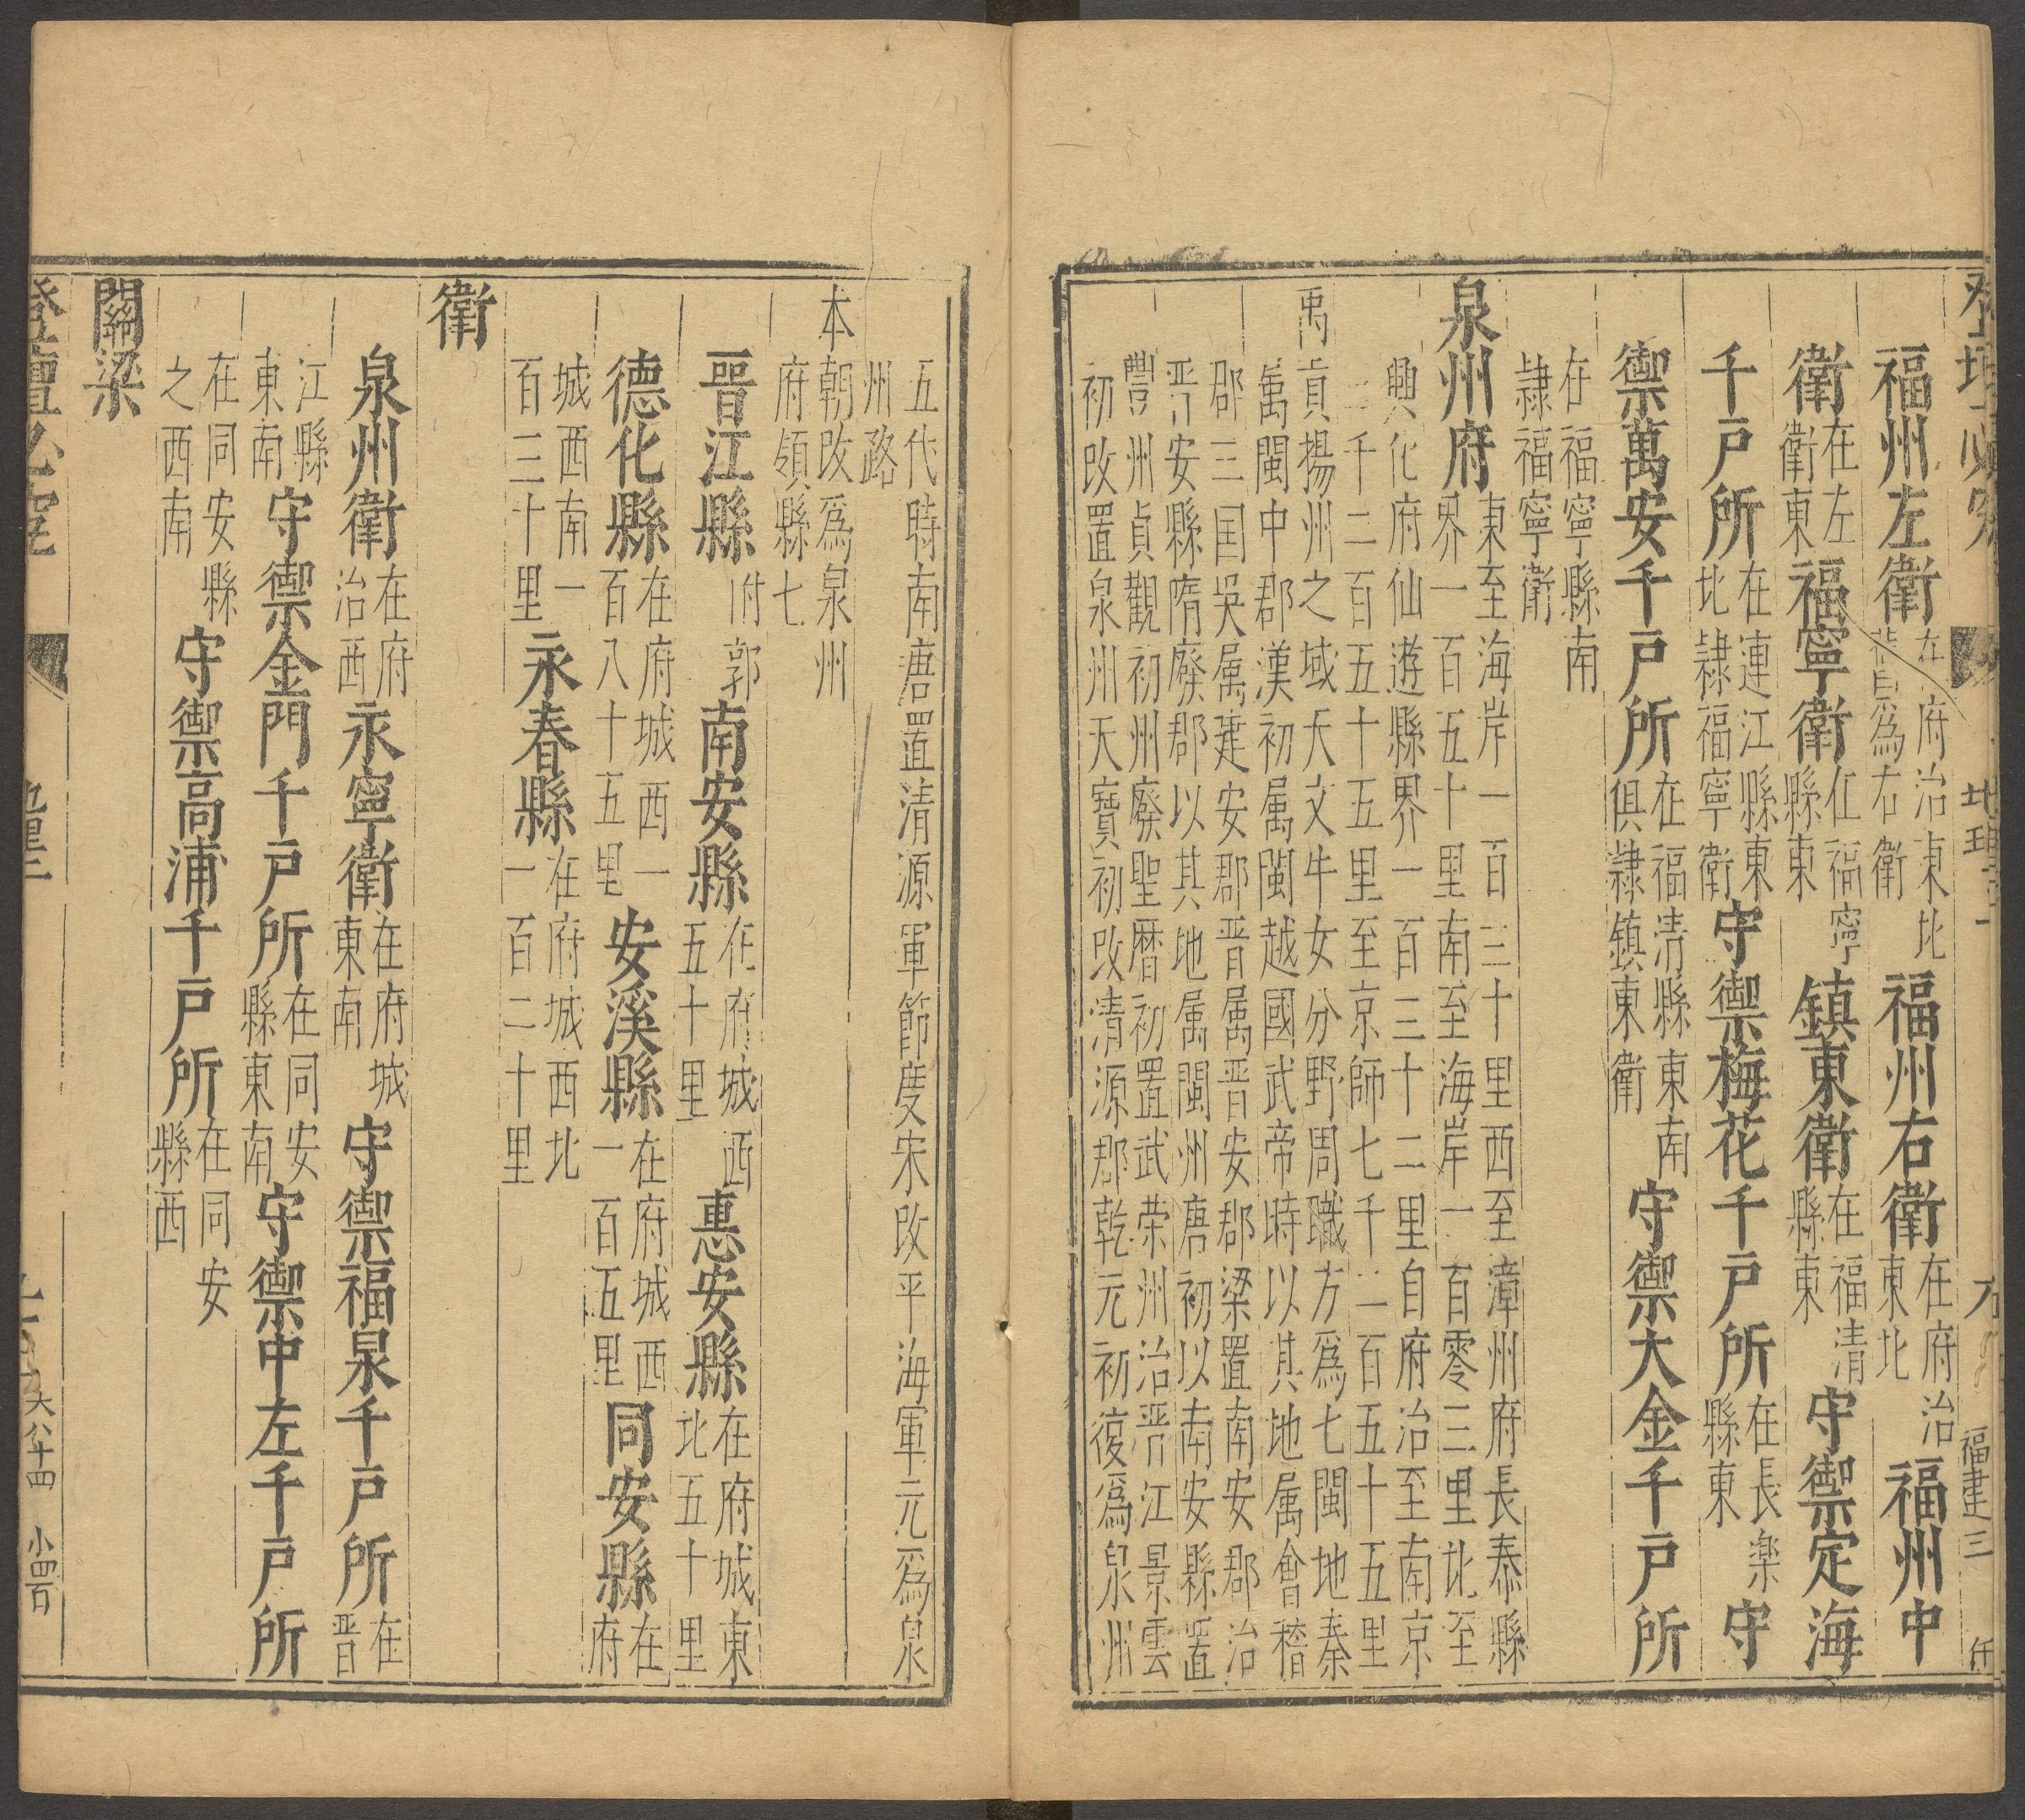 福州左衛在府治東北為右衛福州右衛在府治東北福州中
衛在左衛東福寧衛在福寧縣東鎮東衛在福清縣東守禦定海
千戶所在連江縣東北隷福寧衛守禦梅花千戶所在長楽縣東守
禦萬安千戶所在福清縣東南俱隷鎮東衛守禦大金千戶所
在福寧縣南隷福寧衛
泉州府東至海岸一百三十里西至漳州府長泰縣界一百五十里南至海岸一百零三里北至
興化府仙遊縣界一百三十二里自府治至南京二千二百五十五里至京師七千一百五十五里
禹貢揚州之域天文牛女分野周職方為七閩地秦
為閩中郡漢初属閩越國武帝時以其地属會稽
郡三国吳属建安郡晉属晋安郡梁置南安郡治
晋安縣隋廢郡以其地属閩州唐初以南安縣置
豐州貞觀初州廢聖暦初置武荣州治晋江景雲
初改置泉州天寶初改清源郡乾元初復為泉州
五代時南唐置清源軍節度宋改平海軍元為泉
州路
本朝改為泉州
府領縣七
晉江縣附郭南安縣在府城西五十里惠安縣在府城東北五十里
德化縣在府城西一百八十五里安溪縣在府城西一百五里同安縣在府
城西南一百三十里永春縣在府城西北一百二十里
衛
泉州衛在府治西永寧衛在府城東南守禦福泉千戶所在晋
江縣東南守禦金門千戶所在同安縣東南守禦中左千戶所
在同安縣之西南守禦高浦千戶所在同安縣西
關梁
登壇必究
地理三
大八十四 小四百